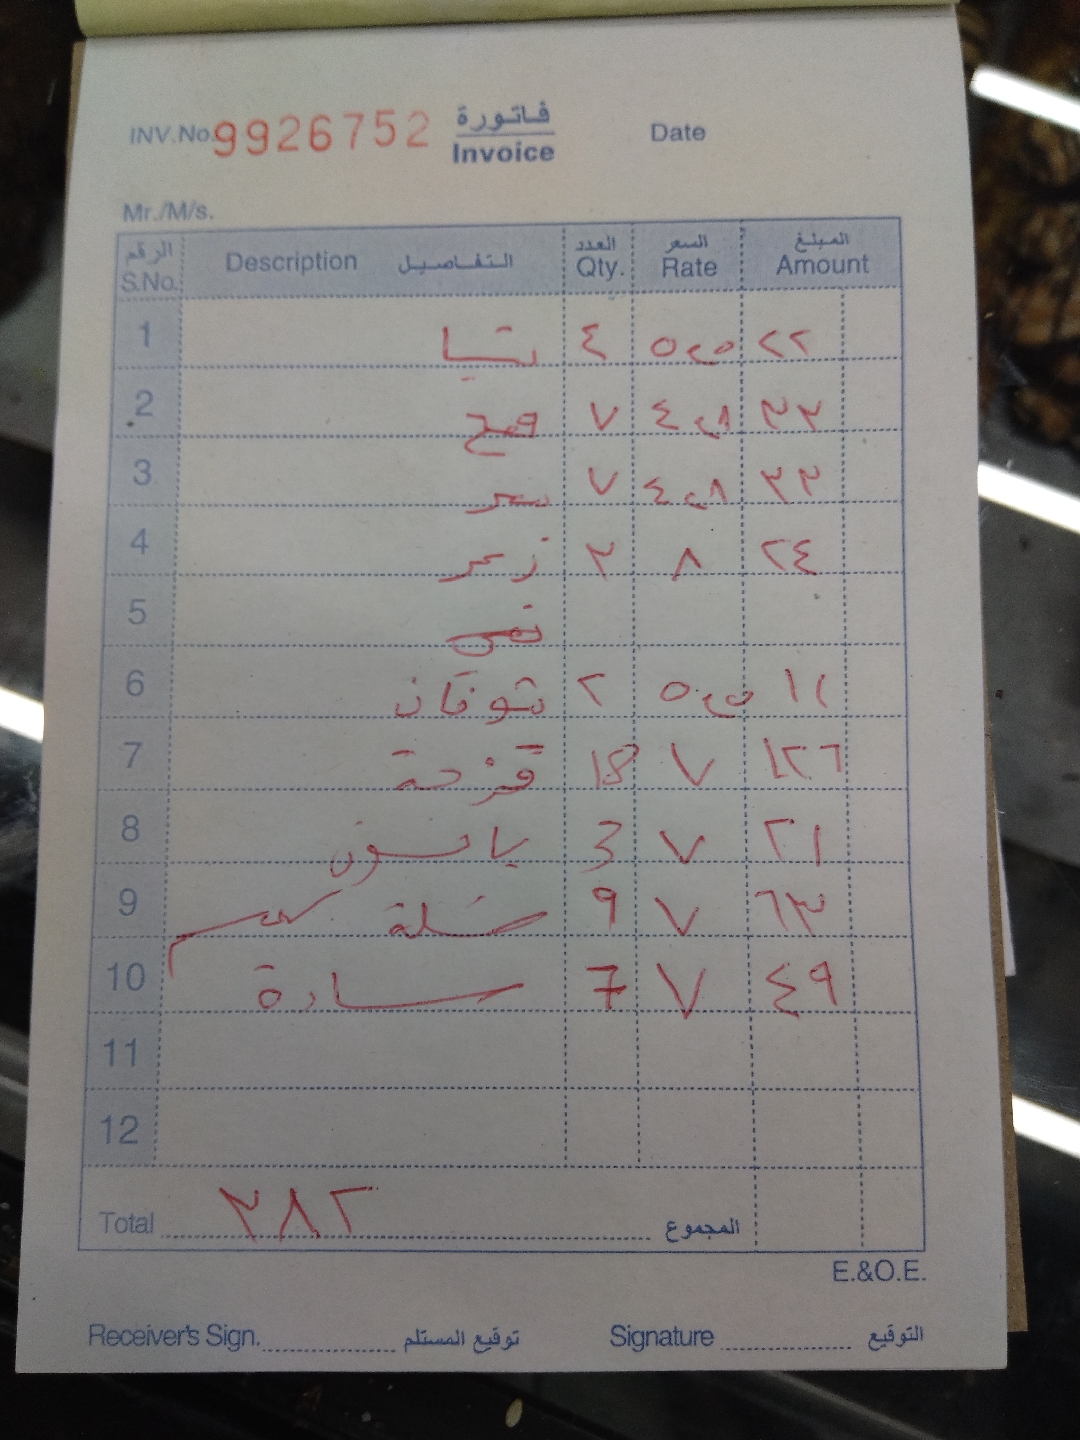 INV.No. 9926752 فاتورة Invoice Date
Mr./M/s.
الرقم S.No. Description التفاصيل العدد Qty. السعر Rate المبلغ Amount
1 ٤ ٢٢
2 ٧ ٣٢
3 ٧ ٣٢
4 ٣ ٨ ٢٤
5
6 شوفان ٢ ١١
7 قزحة 18 ٧ ١٢٦
8 يانسون 3 ٧ ٢١
9 9 ٧ ٦٣
10 سادة 7 ٧ ٤٩
11
12
Total ٣٨٢ المجموع
E.&O.E.
Receiver's Sign. توقيع المستلم Signature التوقيع